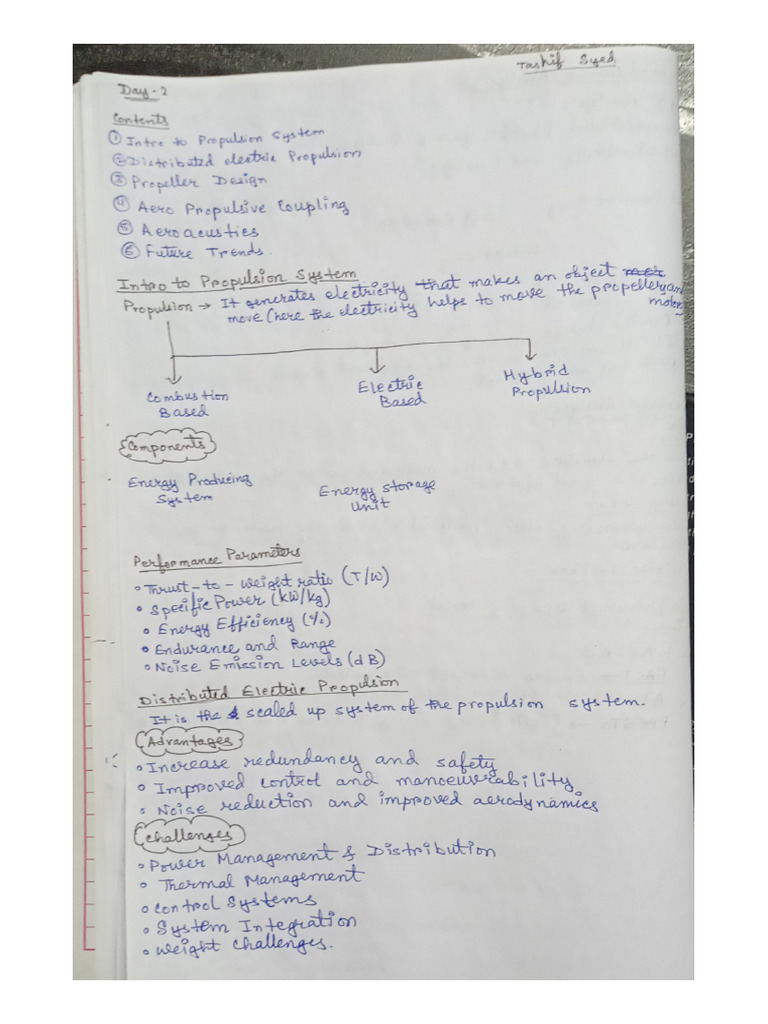 Tashif Syed
Day - 2
Contents
① Intro to Propulsion System
② Distributed electric Propulsion
③ Propeller Design
④ Aero Propulsive Coupling
⑤ Aeroacustics
⑥ Future Trends.
Intro to Propulsion System
Propulsion → It generates electricity that makes an object
move (here the electricity helps to move the propeller and
motor
Combustion
Based
Electric
Based
Hybrid
Propulsion
Components
Energy Producing
System
Energy Storage
Unit
Performance Parameters
• Thrust-to-weight ratio (T/W)
• Specific Power (kW/kg)
• Energy Efficiency (%)
• Endurance and Range
• Noise Emission Levels (dB)
Distributed Electric Propulsion
It is the scaled up system of the propulsion system.
Advantages
• Increase redundancy and safety
• Improved control and manoeuvrability
• Noise reduction and improved aerodynamics
Challenges
• Power Management & Distribution
• Thermal Management
• Control Systems
• System Integration
• Weight challenges.